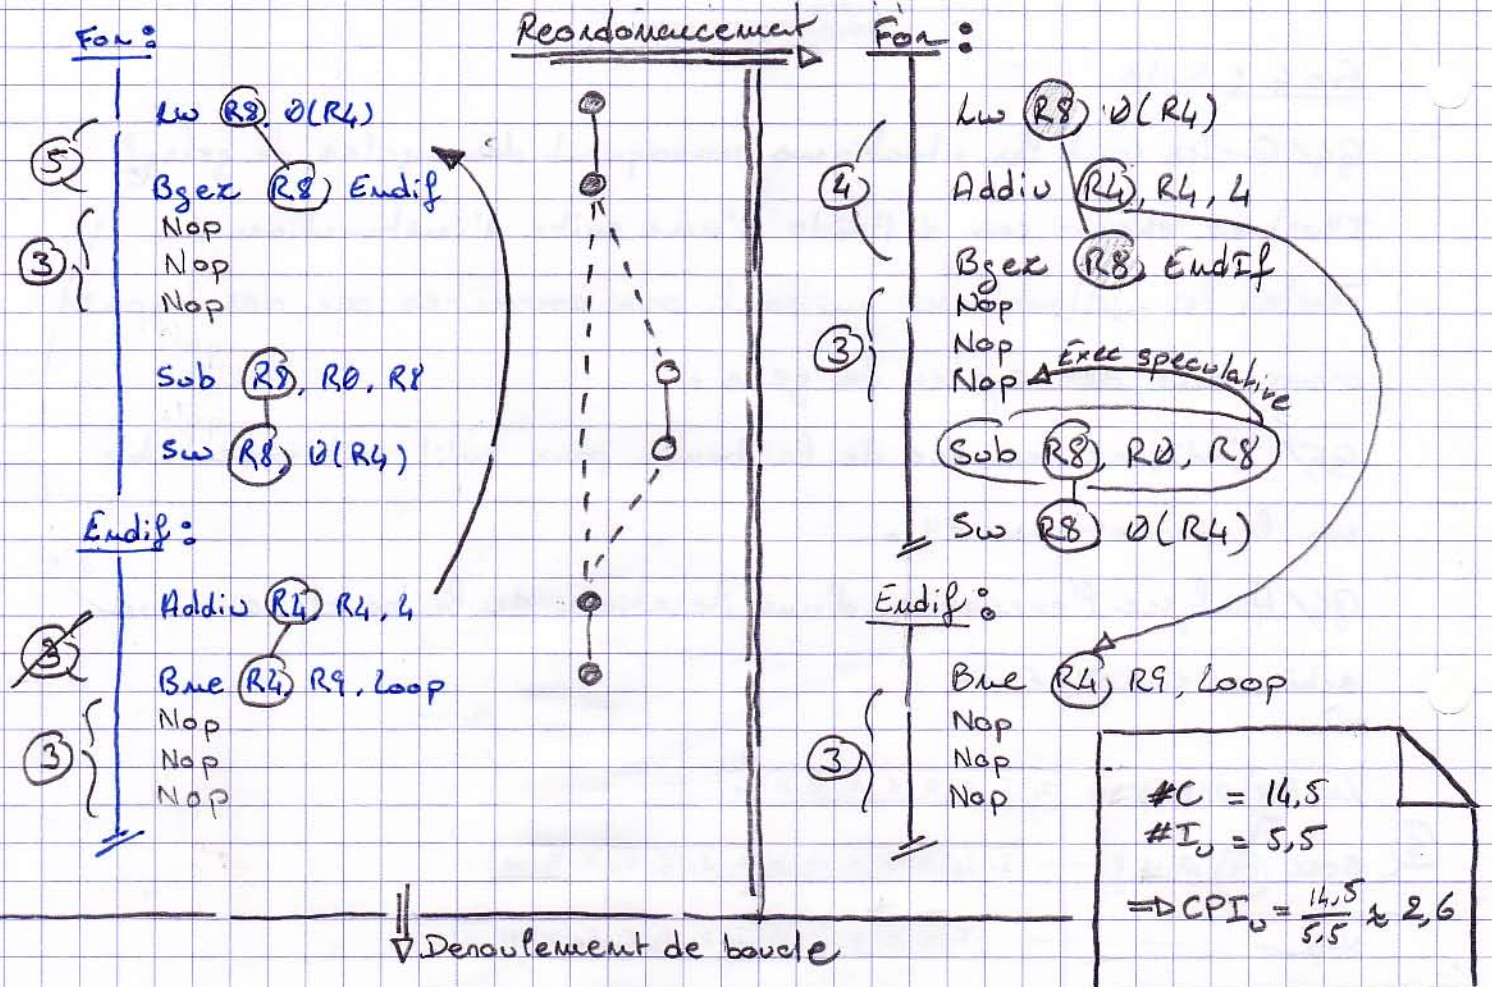 Reordonnancement
For :
Lw R8, 0(R4)
5
Bgez R8, Endif
Nop
3
Nop
Nop
Sub R8, R0, R8
Sw R8, 0(R4)
Endif :
Addiu R4, R4, 4
3
Bne R4, R9, Loop
Nop
3
Nop
Nop
For :
Lw R8, 0(R4)
4
Addiu R4, R4, 4
Bgez R8, EndIf
Nop
3
Nop
Nop
Exec speculative
Sub R8, R0, R8
Sw R8, 0(R4)
Endif :
Bne R4, R9, Loop
Nop
3
Nop
Nop
#C = 14,5
#Iu = 5,5
⇒ CPIu = 14,5 / 5,5 ≈ 2,6
Deroulement de boucle